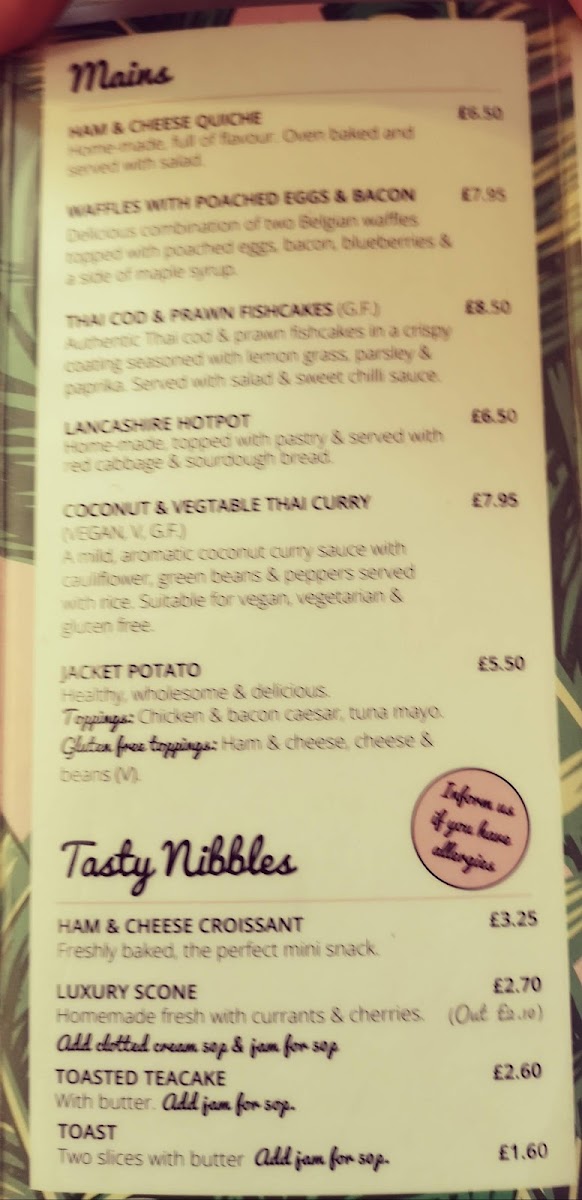 Mains
HAM & CHEESE QUICHE £6.50
Home-made, full of flavour. Oven baked and
served with salad.
WAFFLES WITH POACHED EGGS & BACON £7.95
Delicious combination of two Belgian waffles
topped with poached eggs, bacon, blueberries &
a side of maple syrup.
THAI COD & PRAWN FISHCAKES (G.F.) £8.50
Authentic Thai cod & prawn fishcakes in a crispy
coating seasoned with lemon grass, parsley &
paprika. Served with salad & sweet chilli sauce.
LANCASHIRE HOTPOT £6.50
Home-made, topped with pastry & served with
red cabbage & sourdough bread.
COCONUT & VEGTABLE THAI CURRY £7.95
(VEGAN, V, G.F.)
A mild, aromatic coconut curry sauce with
cauliflower, green beans & peppers served
with rice. Suitable for vegan, vegetarian &
gluten free.
JACKET POTATO £5.50
Healthy, wholesome & delicious.
Toppings: Chicken & bacon caesar, tuna mayo.
Gluten free toppings: Ham & cheese, cheese &
beans (V).
Inform us
if you have
allergies
Tasty Nibbles
HAM & CHEESE CROISSANT £3.25
Freshly baked, the perfect mini snack.
LUXURY SCONE £2.70
Homemade fresh with currants & cherries. (Out £2.10)
Add clotted cream 50p & jam for 50p
TOASTED TEACAKE £2.60
With butter. Add jam for 50p.
TOAST
Two slices with butter Add jam for 50p. £1.60